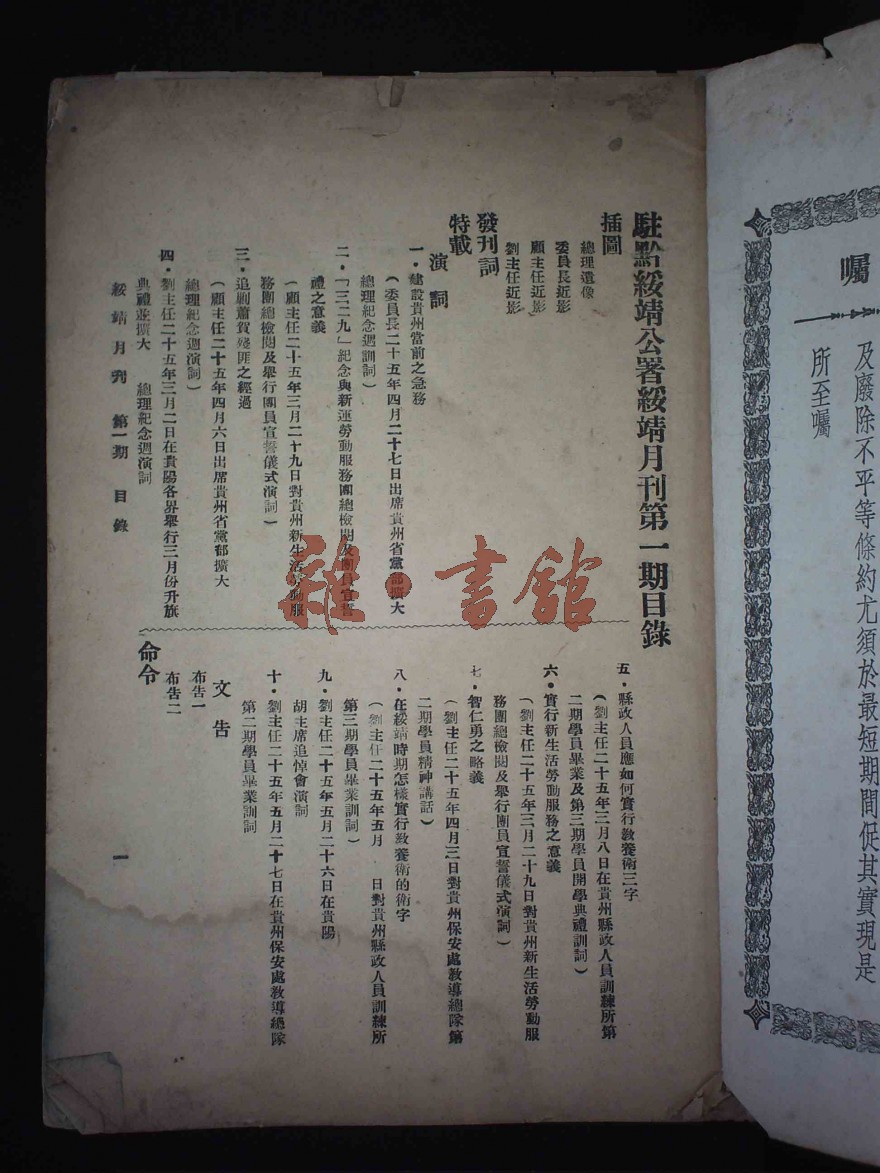 囑
及廢除不平等條約尤須於最短期間促其實現是
所至囑
駐黔綏靖公署綏靖月刊第一期目錄
插圖
總理遺像
委員長近影
顧主任近影
劉主任近影
發刊詞
特載
演詞
一．建設貴州當前之急務
（委員長二十五年四月二十七日出席貴州省黨部擴大
總理紀念週訓詞）
二．「三二九」紀念與新運勞動服務團總檢閱及團員宣誓
禮之意義
（顧主任二十五年三月二十九日對貴州新生活勞動服
務團總檢閱及舉行團員宣誓儀式演詞）
三．追剿蕭賀殘匪之經過
（顧主任二十五年四月六日出席貴州省黨部擴大
總理紀念週演詞）
四．劉主任二十五年三月二日在貴陽各界舉行三月份升旗
典禮並擴大　總理紀念週演詞
五．縣政人員應如何實行教養衛三字
（劉主任二十五年三月八日在貴州縣政人員訓練所第
二期學員畢業及第三期學員開學典禮訓詞）
六．實行新生活勞動服務之意義
（劉主任二十五年三月二十九日對貴州新生活勞動服
務團總檢閱及舉行團員宣誓儀式演詞）
七．智仁勇之略義
（劉主任二十五年四月三日對貴州保安處教導總隊第
二期學員精神講話）
八．在綏靖時期怎樣實行教養衛的衛字
（劉主任二十五年五月　日對貴州縣政人員訓練所
第三期學員畢業訓詞）
九．劉主任二十五年五月二十六日在貴陽
胡主席追悼會演詞
十．劉主任二十五年五月二十七日在貴州保安處教導總隊
第二期學員畢業訓詞
文告
布告一
布告二
命令
綏靖月刊　第一期　目錄
一
雜·書館